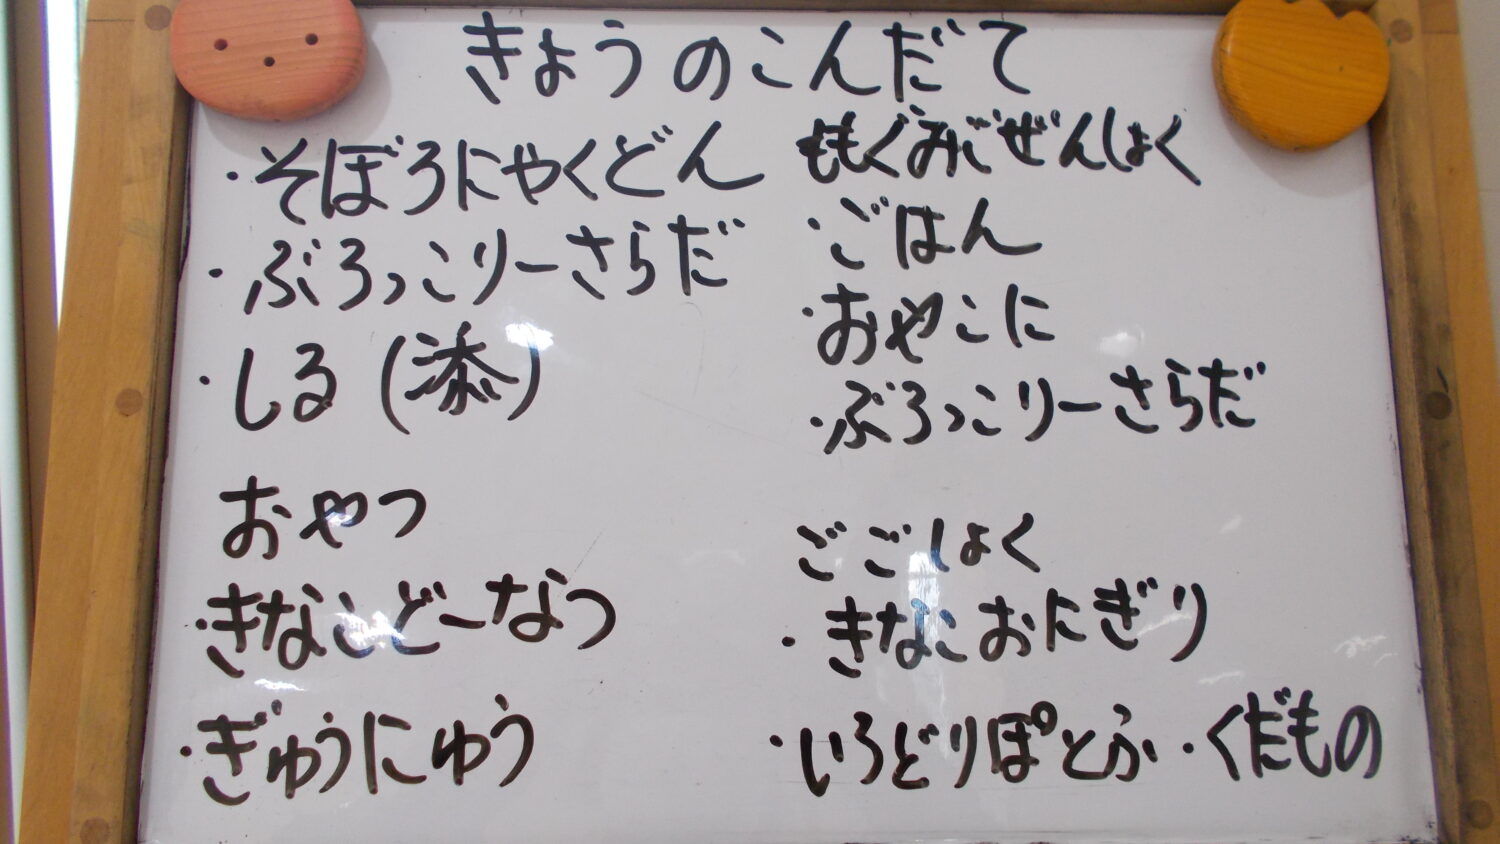 きょうのこんだて
・そぼろにやくどん
・ぶろっこりーさらだ
・しる(添)
おやつ
・きなこどーなつ
・ぎゅうにゅう
ももぐみごぜんしょく
・ごはん
・おやこに
・ぶろっこりーさらだ
ごごしょく
・きなこおにぎり
・いろどりぽとふ・くだもの